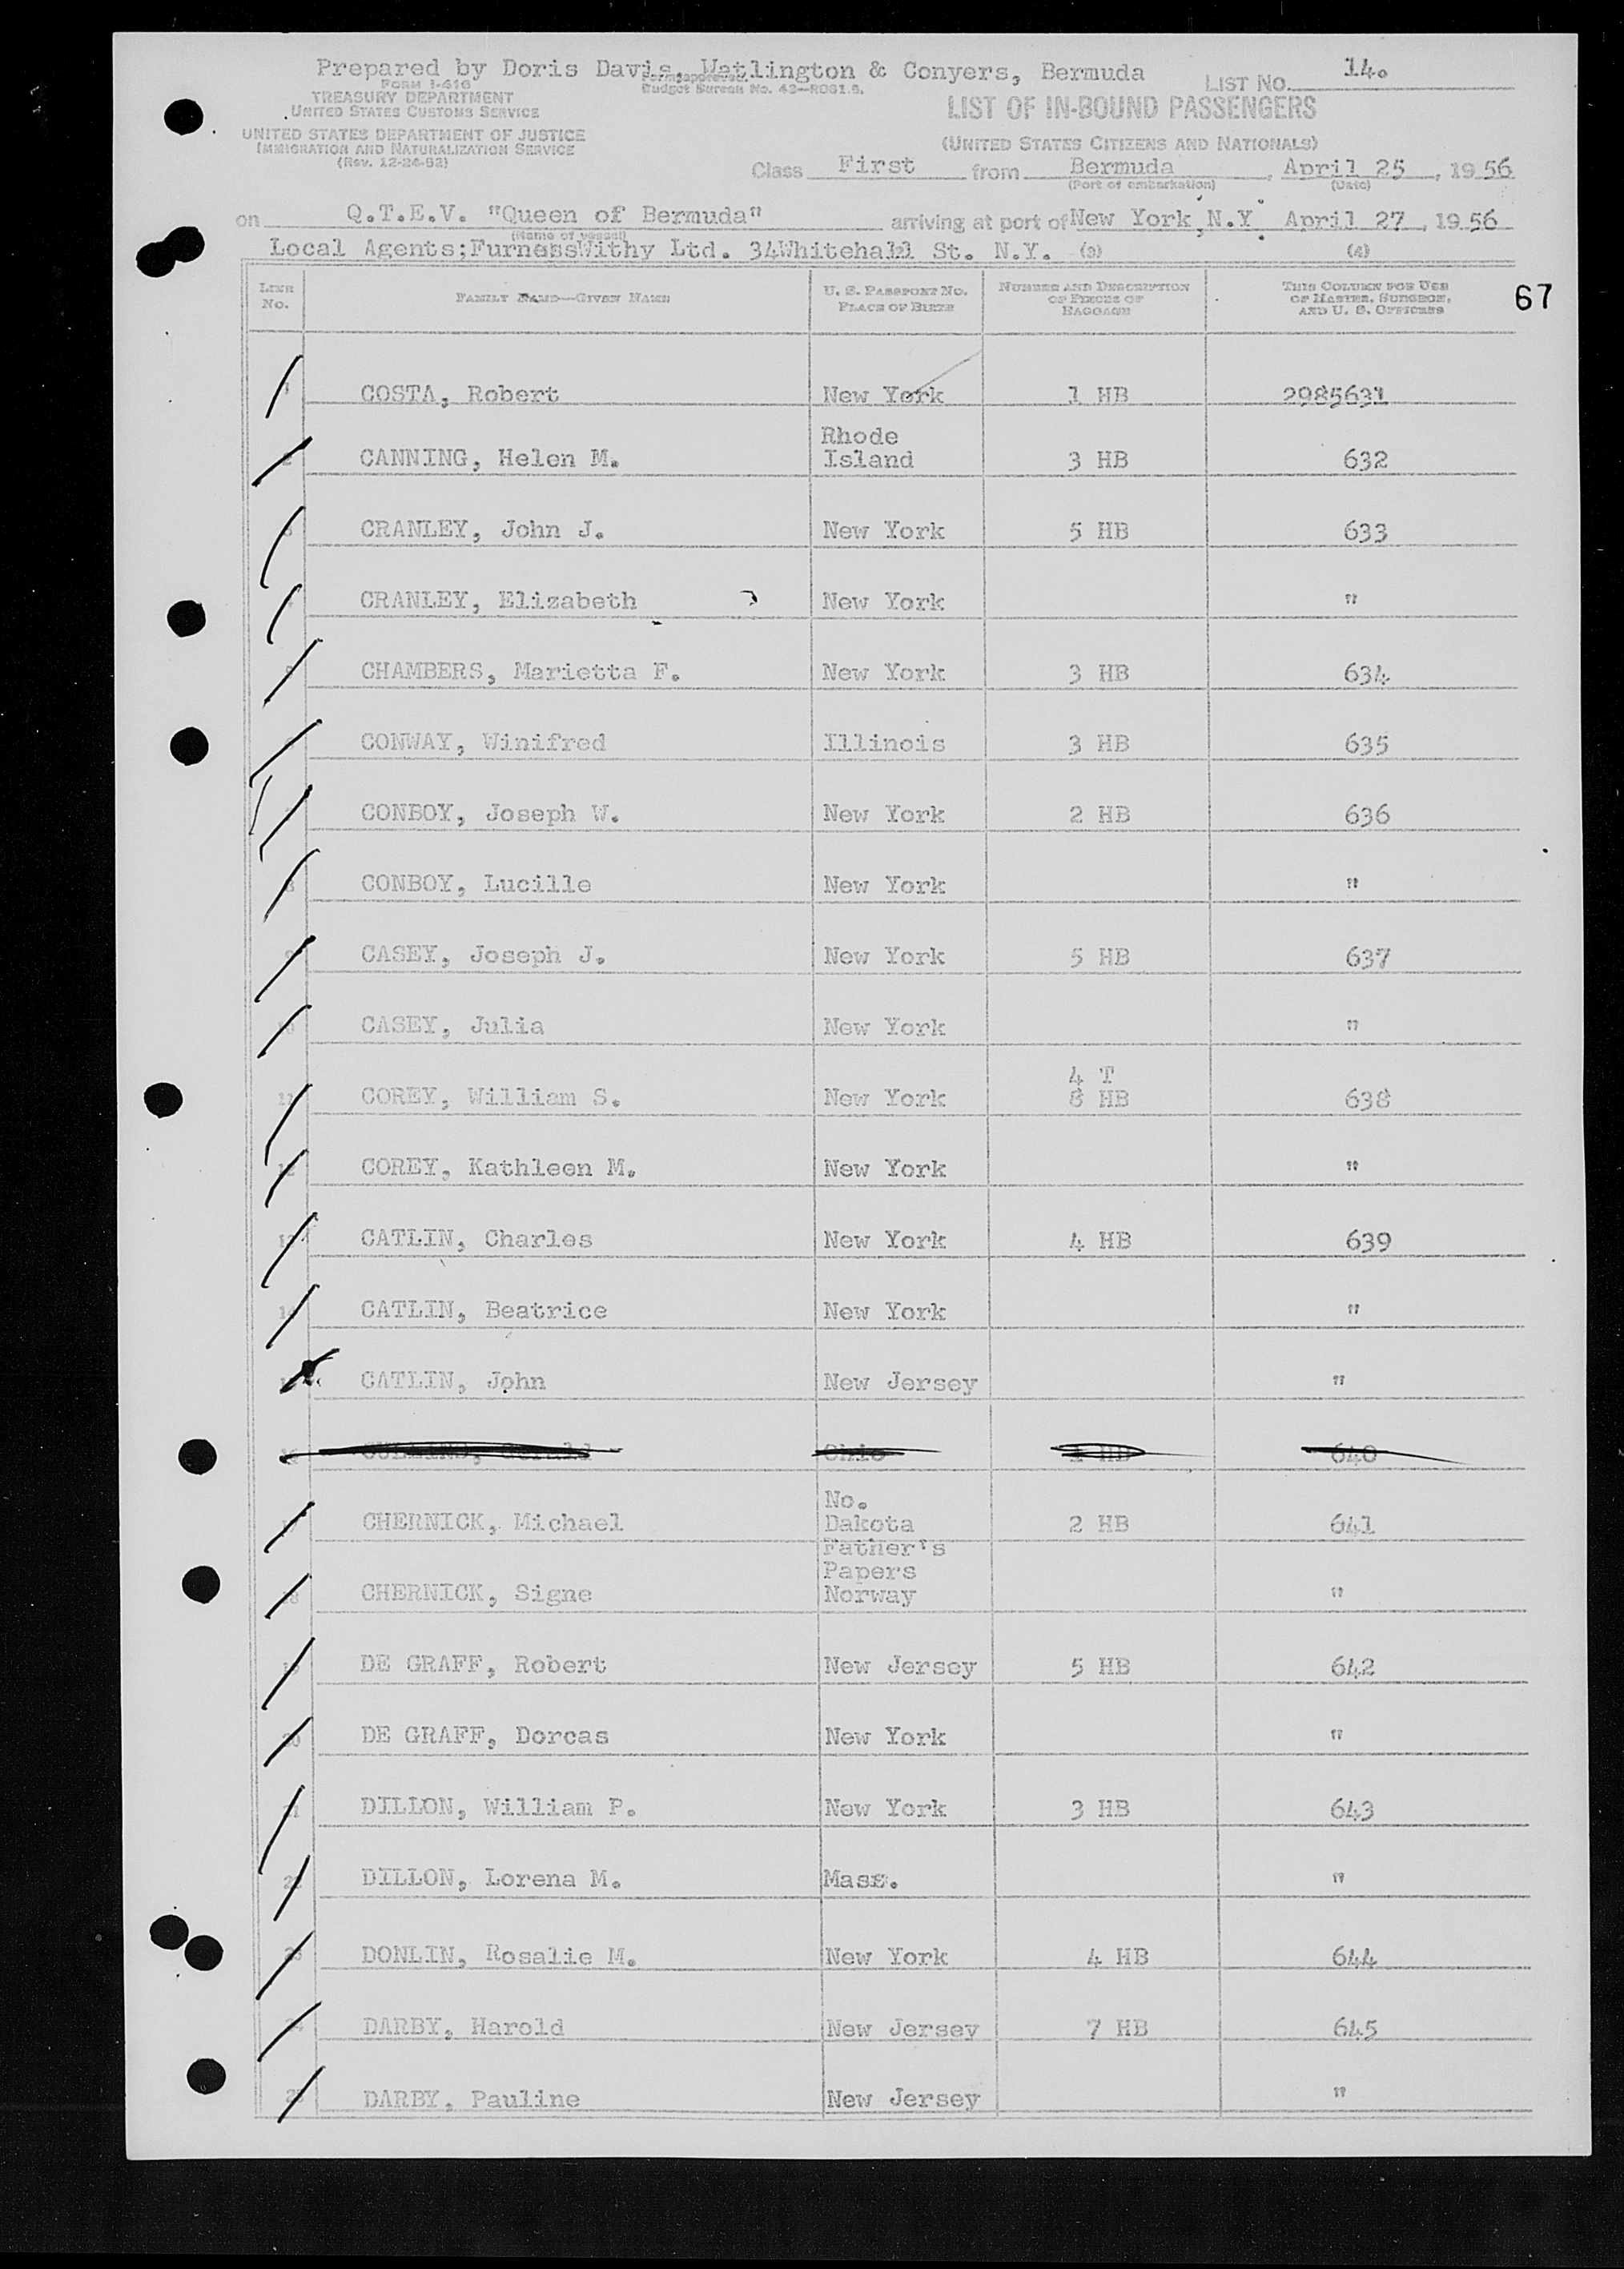 Prepared by Doris Davis, Watlington & Conyers, Bermuda
LIST No. 14.
FORM I-416
TREASURY DEPARTMENT
UNITED STATES CUSTOMS SERVICE
UNITED STATES DEPARTMENT OF JUSTICE
IMMIGRATION AND NATURALIZATION SERVICE
(Rev. 12-24-52)
Form approved.
Budget Bureau No. 43—R081.5.
LIST OF IN-BOUND PASSENGERS
(UNITED STATES CITIZENS AND NATIONALS)
Class First from Bermuda, April 25, 1956
(Port of embarkation) (Date)
on Q.T.E.V. "Queen of Bermuda" arriving at port of New York, N.Y. April 27, 1956
(Name of vessel)
Local Agents; Furness Withy Ltd. 34 Whitehall St. N.Y. (3) (4)
LINE No. FAMILY NAME—GIVEN NAME U. S. PASSPORT No. PLACE OF BIRTH NUMBER AND DESCRIPTION OF PIECES OF BAGGAGE THIS COLUMN FOR USE OF MASTER, SURGEON, AND U. S. OFFICERS
67
1 COSTA, Robert New York 1 HB 2985631
2 CANNING, Helen M. Rhode Island 3 HB 632
3 CRANLEY, John J. New York 5 HB 633
4 CRANLEY, Elizabeth New York "
5 CHAMBERS, Marietta F. New York 3 HB 634
6 CONWAY, Winifred Illinois 3 HB 635
7 CONBOY, Joseph W. New York 2 HB 636
8 CONBOY, Lucille New York "
9 CASEY, Joseph J. New York 5 HB 637
10 CASEY, Julia New York "
11 COREY, William S. New York 4 T 8 HB 638
12 COREY, Kathleen M. New York "
13 CATLIN, Charles New York 4 HB 639
14 CATLIN, Beatrice New York "
15 CATLIN, John New Jersey "
16 Ohio 1 HB 640
17 CHERNICK, Michael No. Dakota 2 HB 641
18 CHERNICK, Signe Father's Papers Norway "
19 DE GRAFF, Robert New Jersey 5 HB 642
20 DE GRAFF, Dorcas New York "
21 DILLON, William P. New York 3 HB 643
22 DILLON, Lorena M. Mass. "
23 DONLIN, Rosalie M. New York 4 HB 644
24 DARBY, Harold New Jersey 7 HB 645
25 DARBY, Pauline New Jersey "